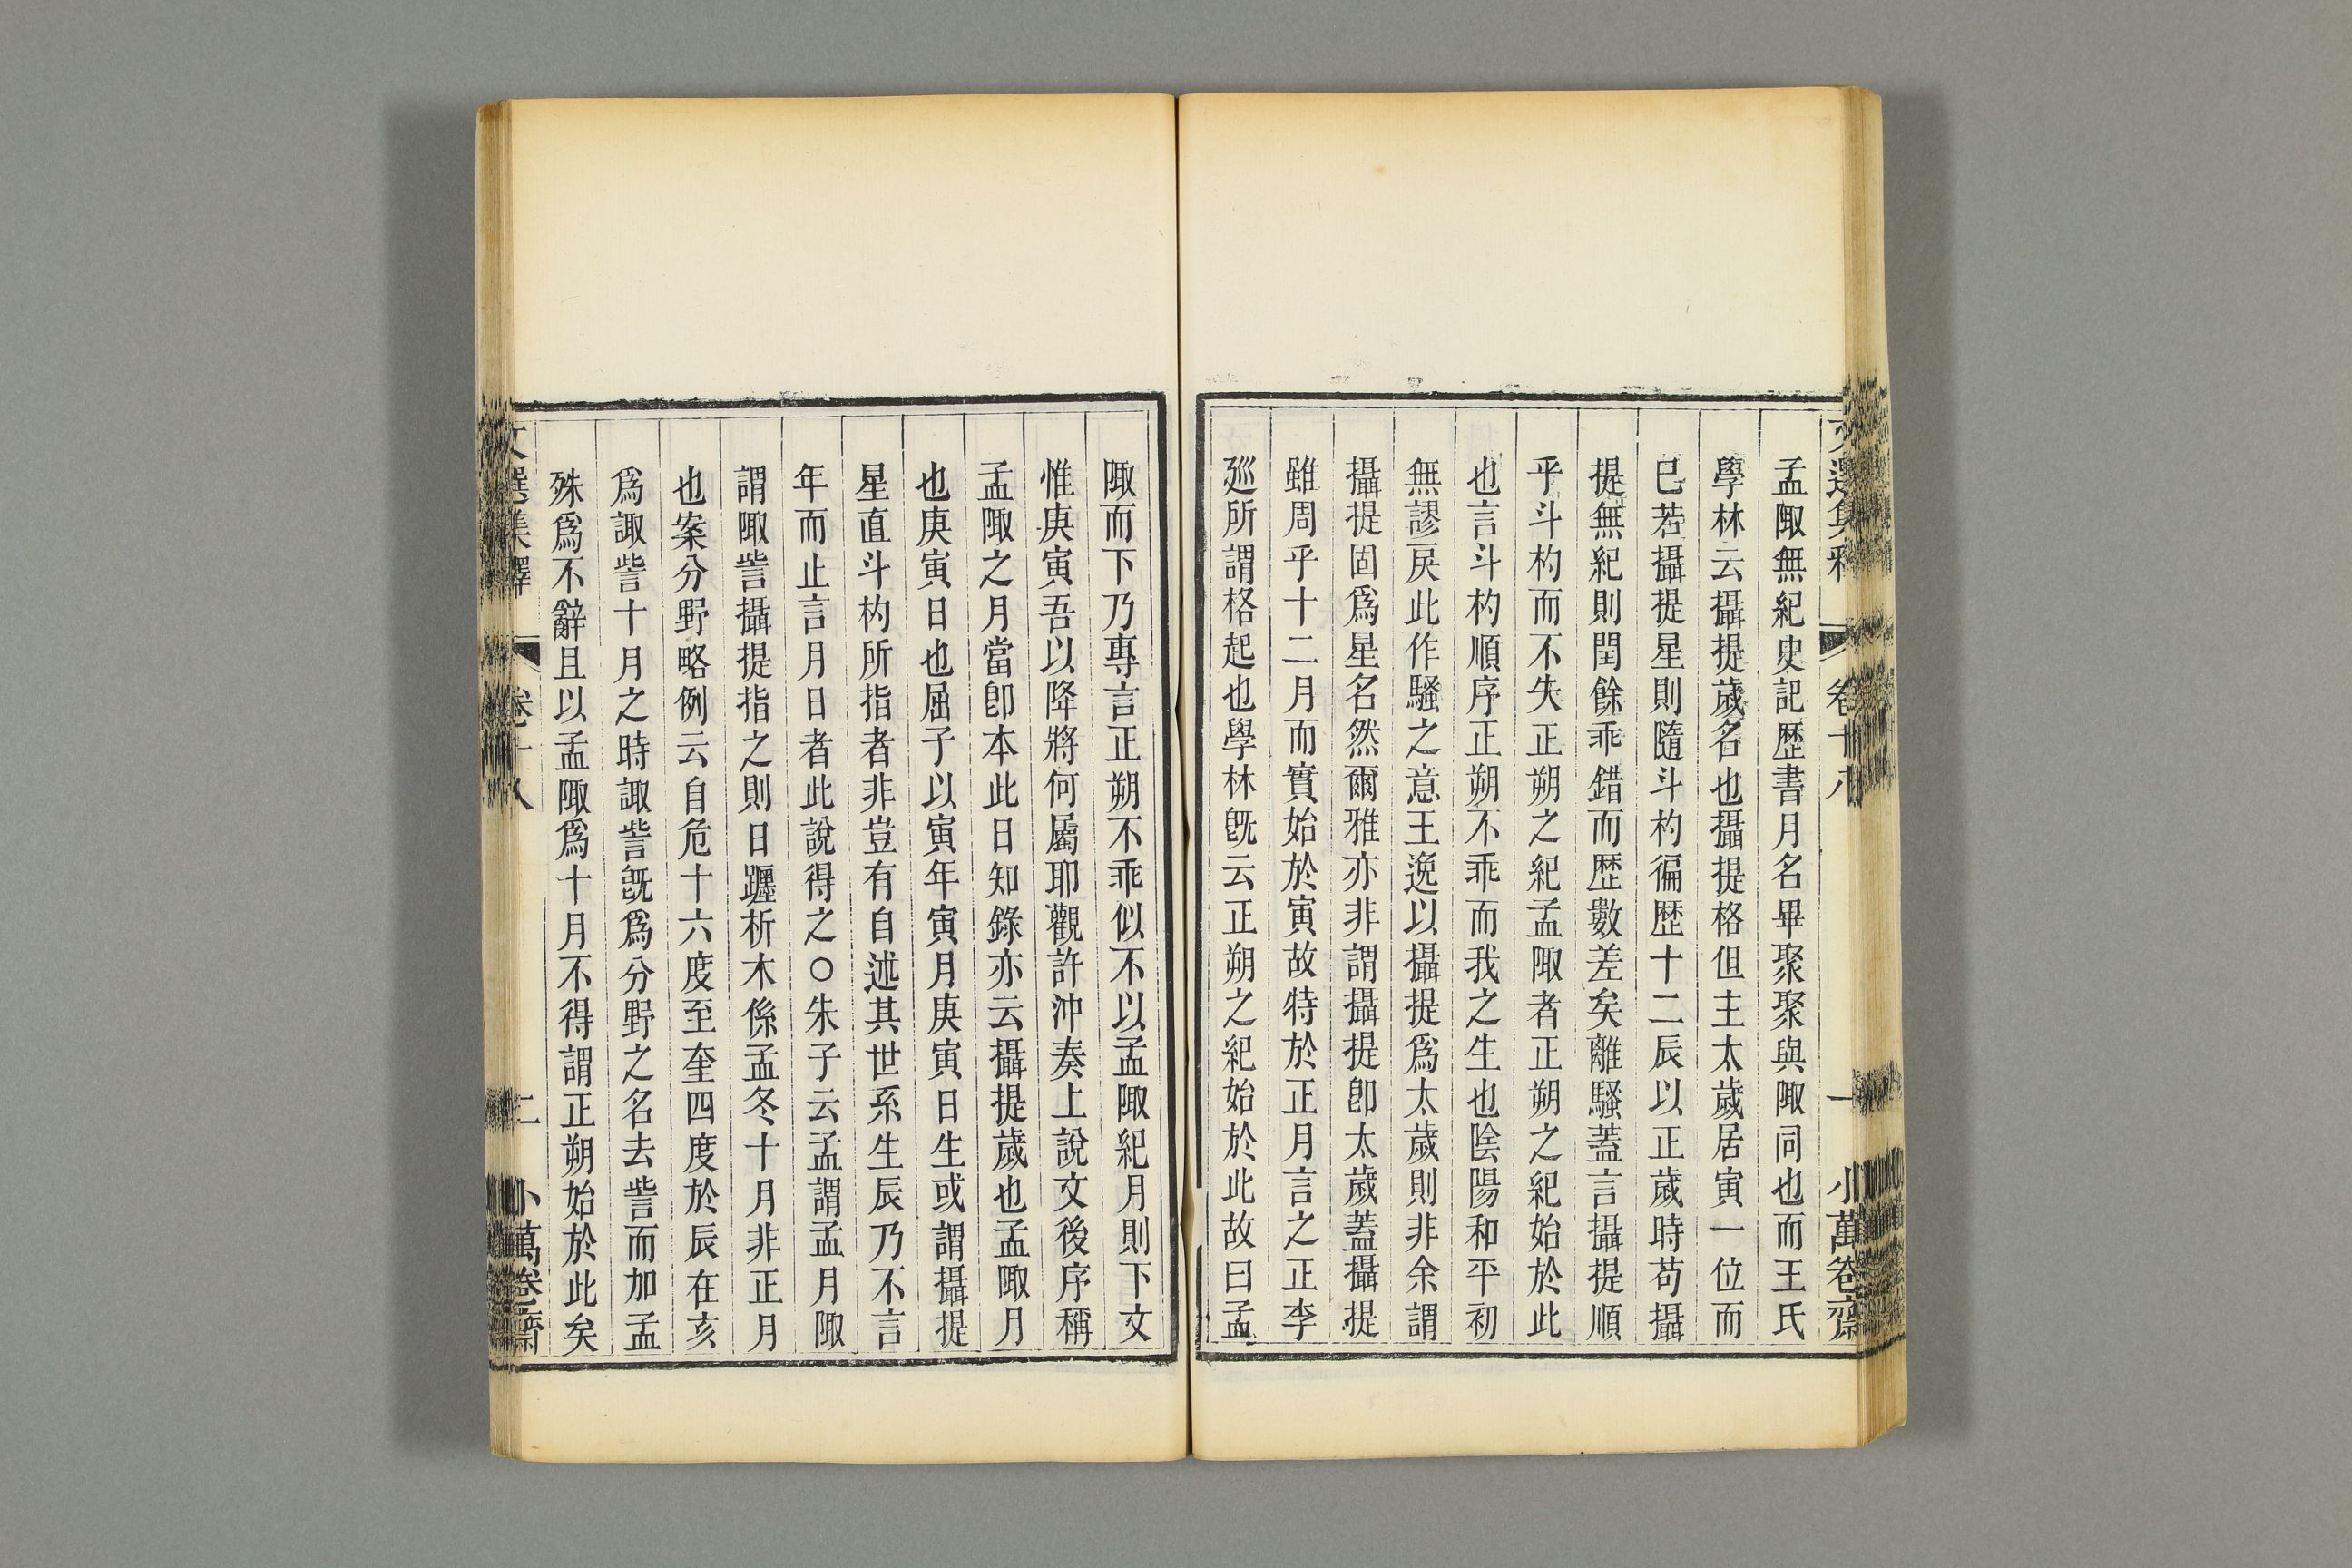 文選集釋 卷十八 一 小萬卷齋
孟陬無紀史記歷書月名畢聚聚與陬同也而王氏
學林云攝提歲名也攝提格但主太歲居寅一位而
巳若攝提星則隨斗杓徧歷十二辰以正歲時苟攝
提無紀則閏餘乖錯而歷數差矣離騷蓋言攝提順
乎斗杓而不失正朔之紀孟陬者正朔之紀始於此
也言斗杓順序正朔不乖而我之生也陰陽和平初
無謬戾此作騷之意王逸以攝提爲太歲則非余謂
攝提固爲星名然爾雅亦非謂攝提卽太歲蓋攝提
雖周乎十二月而實始於寅故特於正月言之正李
巡所謂格起也學林旣云正朔之紀始於此故曰孟
陬而下乃專言正朔不乖似不以孟陬紀月則下文
惟庚寅吾以降將何屬耶觀許沖奏上說文後序稱
孟陬之月當卽本此日知錄亦云攝提歲也孟陬月
也庚寅日也屈子以寅年寅月庚寅日生或謂攝提
星直斗杓所指者非豈有自述其世系生辰乃不言
年而止言月日者此說得之○朱子云孟謂孟月陬
謂陬訾攝提指之則日躔析木係孟冬十月非正月
也案分野略例云自危十六度至奎四度於辰在亥
爲諏訾十月之時諏訾旣爲分野之名去訾而加孟
殊爲不辭且以孟陬爲十月不得謂正朔始於此矣
文選集釋 卷十八 二 小萬卷齋